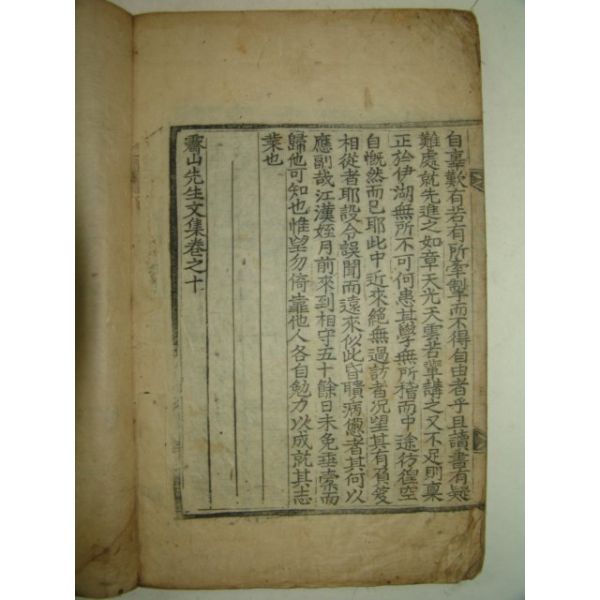 自辜歎有若有所牽掣而不得自由者乎且讀書有疑
難處就先進之如章天光天雲苦輩講之又不足則稟
正於伊湖無所不可何患其學無所稽而中途彷徨空
自慨然而已耶此中近來絕無過訪者況望其有負笈
相從者耶設令誤聞而遠來似此昏聵病儳者其何以
應副哉江漢姪月前來到相守五十餘日未免垂橐而
歸他可知也惟望勿倚靠他人各自勉力以成就其志
業也
霽山先生文集卷之十